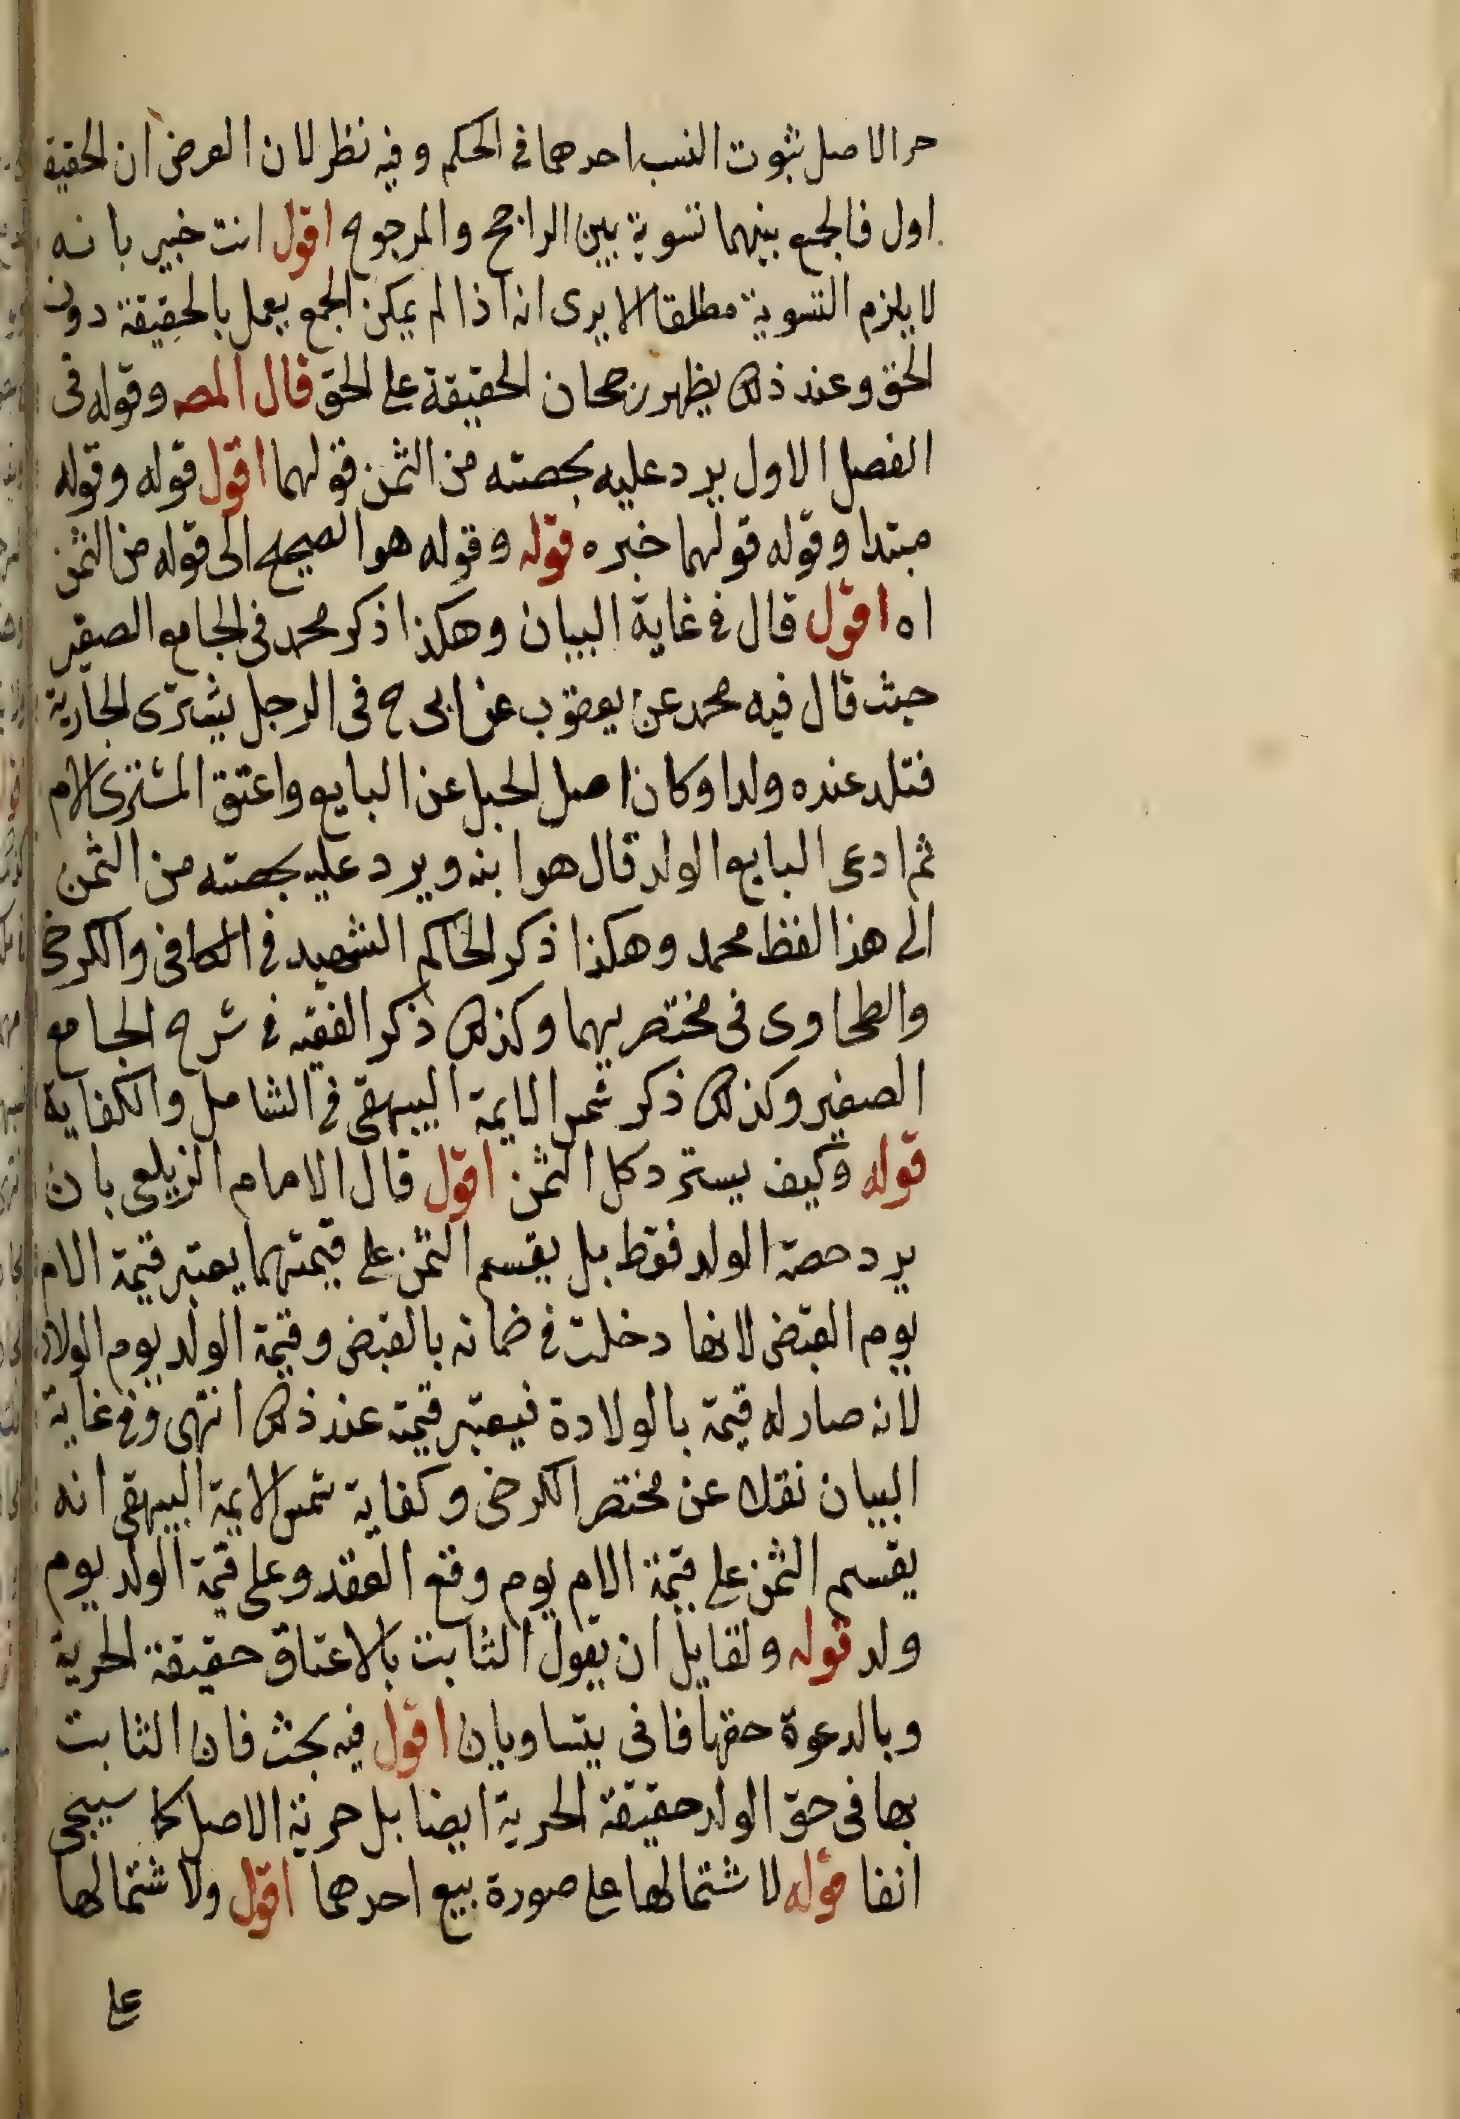 حر الاصل ثبوت النسب احدهما في الحكم وفيه نظر لان الفرض ان الحقيقة
اولى فالجمع بينهما تسوية بين الراجح والمرجوح اقول انت خبير بانه
لا يلزم التسوية مطلقا الا يرى انه اذا لم يمكن الجمع يعمل بالحقيقة دون
الحق وعند ذلك يظهر رجحان الحقيقة على الحق قال المصه وقوله في
الفصل الاول يرد عليه بحصته من الثمن قولهما اقول قوله وقوله
مبتدا وقوله قولهما خبره قوله وقوله هو الصحيح الى قوله من الثمن
اه اقول قال في غاية البيان وهكذا ذكر محمد في الجامع الصغير
حيث قال فيه محمد عن يعقوب عن ابى ح في الرجل يشترى الجارية
فتلد عنده ولدا وكان اصل الحبل عن البايع واعتق المشترى الام
ثم ادعى البايع الولد قال هو ابنه ويرد عليه بحصته من الثمن
الى هذا لفظ محمد وهكذا ذكر الحاكم الشهيد في الكافى والكرخى
والطحاوى في مختصريهما وكذلك ذكر الفقيه في شرح الجامع
الصغير وكذلك ذكر شمس الايمة البيهقى في الشامل والكفاية
قوله وكيف يسترد كل الثمن اقول قال الامام الزيلعى بان
يرد حصة الولد فقط بل يقسم الثمن على قيمتهما يعتبر قيمة الام
يوم القبض لانها دخلت في ضمانه بالقبض وقيمة الولد يوم الولادة
لانه صار له قيمة بالولادة فيعتبر قيمته عند ذلك انتهى وفي غاية
البيان نقلا عن مختصر الكرخى وكفاية شمس الايمة البيهقى انه
يقسم الثمن على قيمة الام يوم وقع العقد وعلى قيمة الولد يوم
ولد قوله ولقايل ان يقول الثابت بالاعتاق حقيقة الحرية
وبالدعوة حقها فانى يتساويان اقول فيه بحث فان الثابت
بها في حق الولد حقيقة الحرية ايضا بل حرية الاصل كما سيجى
انفا قوله لاشتمالها على صورة بيع احدهما اقول ولاشتمالها
على